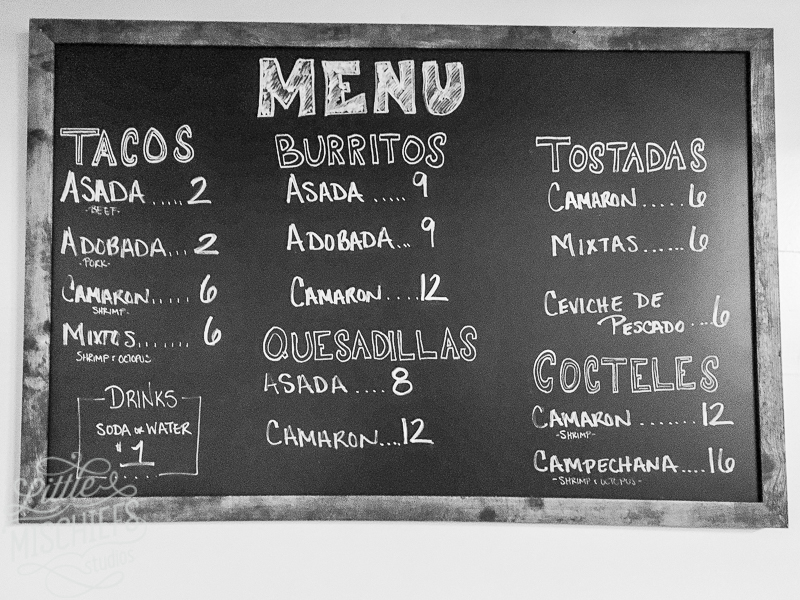 MENU
TACOS
ASADA.....2
-BEEF-
ADOBADA...2
-PORK-
CAMARON......6
SHRIMP-
MIXTOS........6
SHRIMP & OCTOPUS
DRINKS
SODA OR WATER
$1
BURRITOS
ASADA.....9
ADOBADA...9
CAMARON....12
QUESADILLAS
ASADA....8
CAMARON....12
TOSTADAS
CAMARON.....6
MIXTAS......6
CEVICHE DE
PESCADO...6
COCTELES
CAMARON.......12
-SHRIMP-
CAMPECHANA....16
-SHRIMP & OCTOPUS-
Little
MISCHIEFS
studios